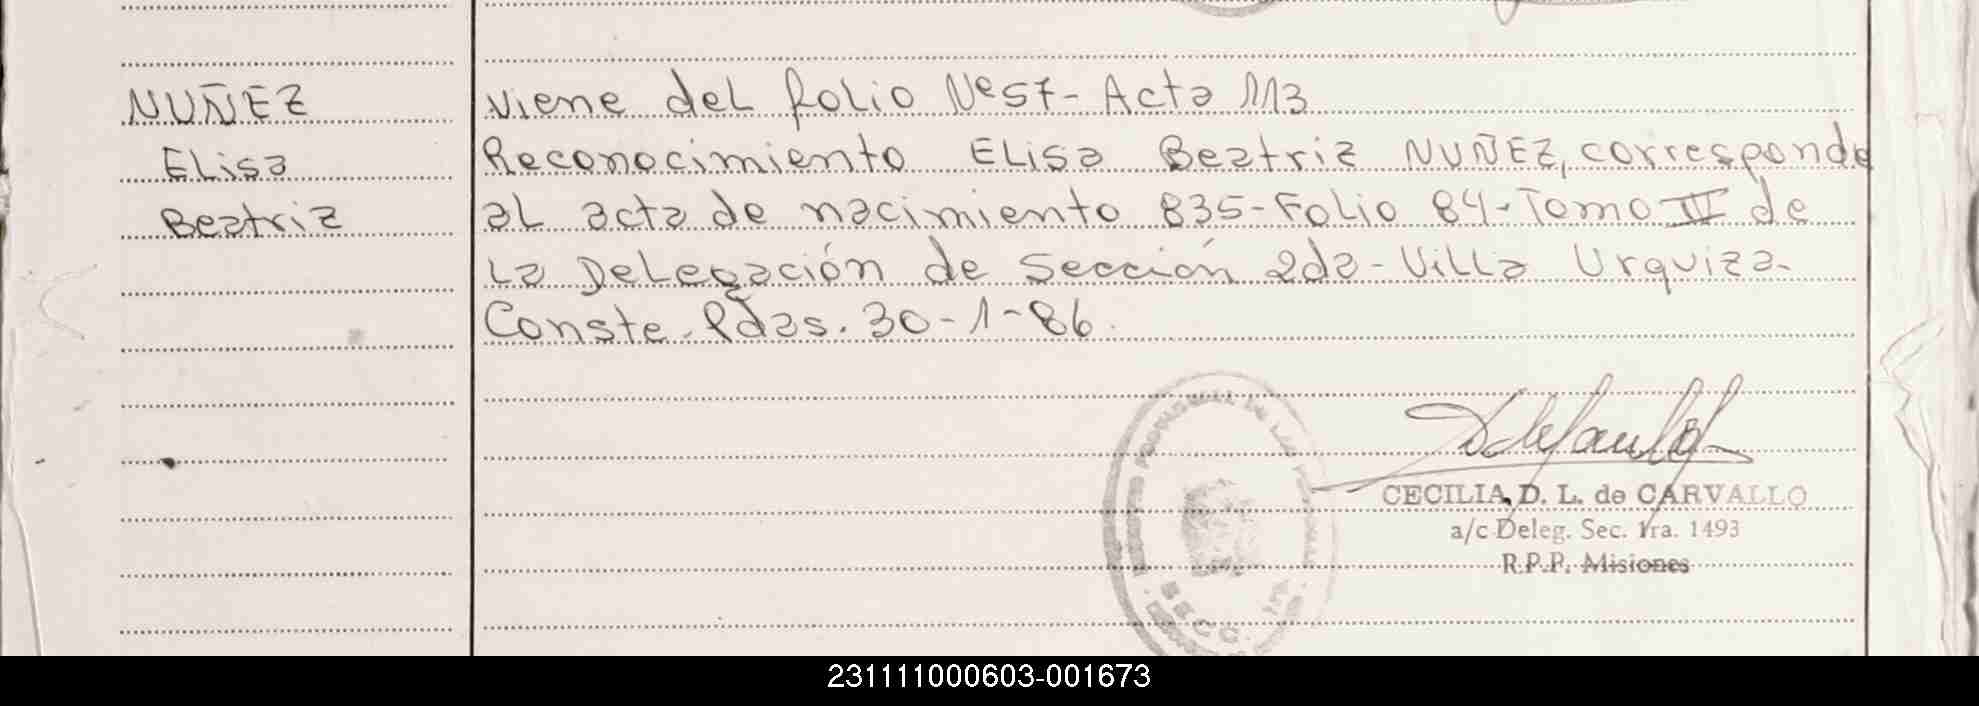 NUÑEZ
Elisa
Beatriz
Viene del folio Nº 57- Acta 113
Reconocimiento Elisa Beatriz NUÑEZ, corresponde
al acta de nacimiento 835-Folio 84-Tomo III de
la Delegación de Sección 2da-Villa Urquiza-
Conste-Pdas. 30-1-86.
CECILIA D. L. de CARVALLO
a/c Deleg. Sec. 1ra. 1493
R.P.P. Misiones
SECC. 1ra
231111000603-001673